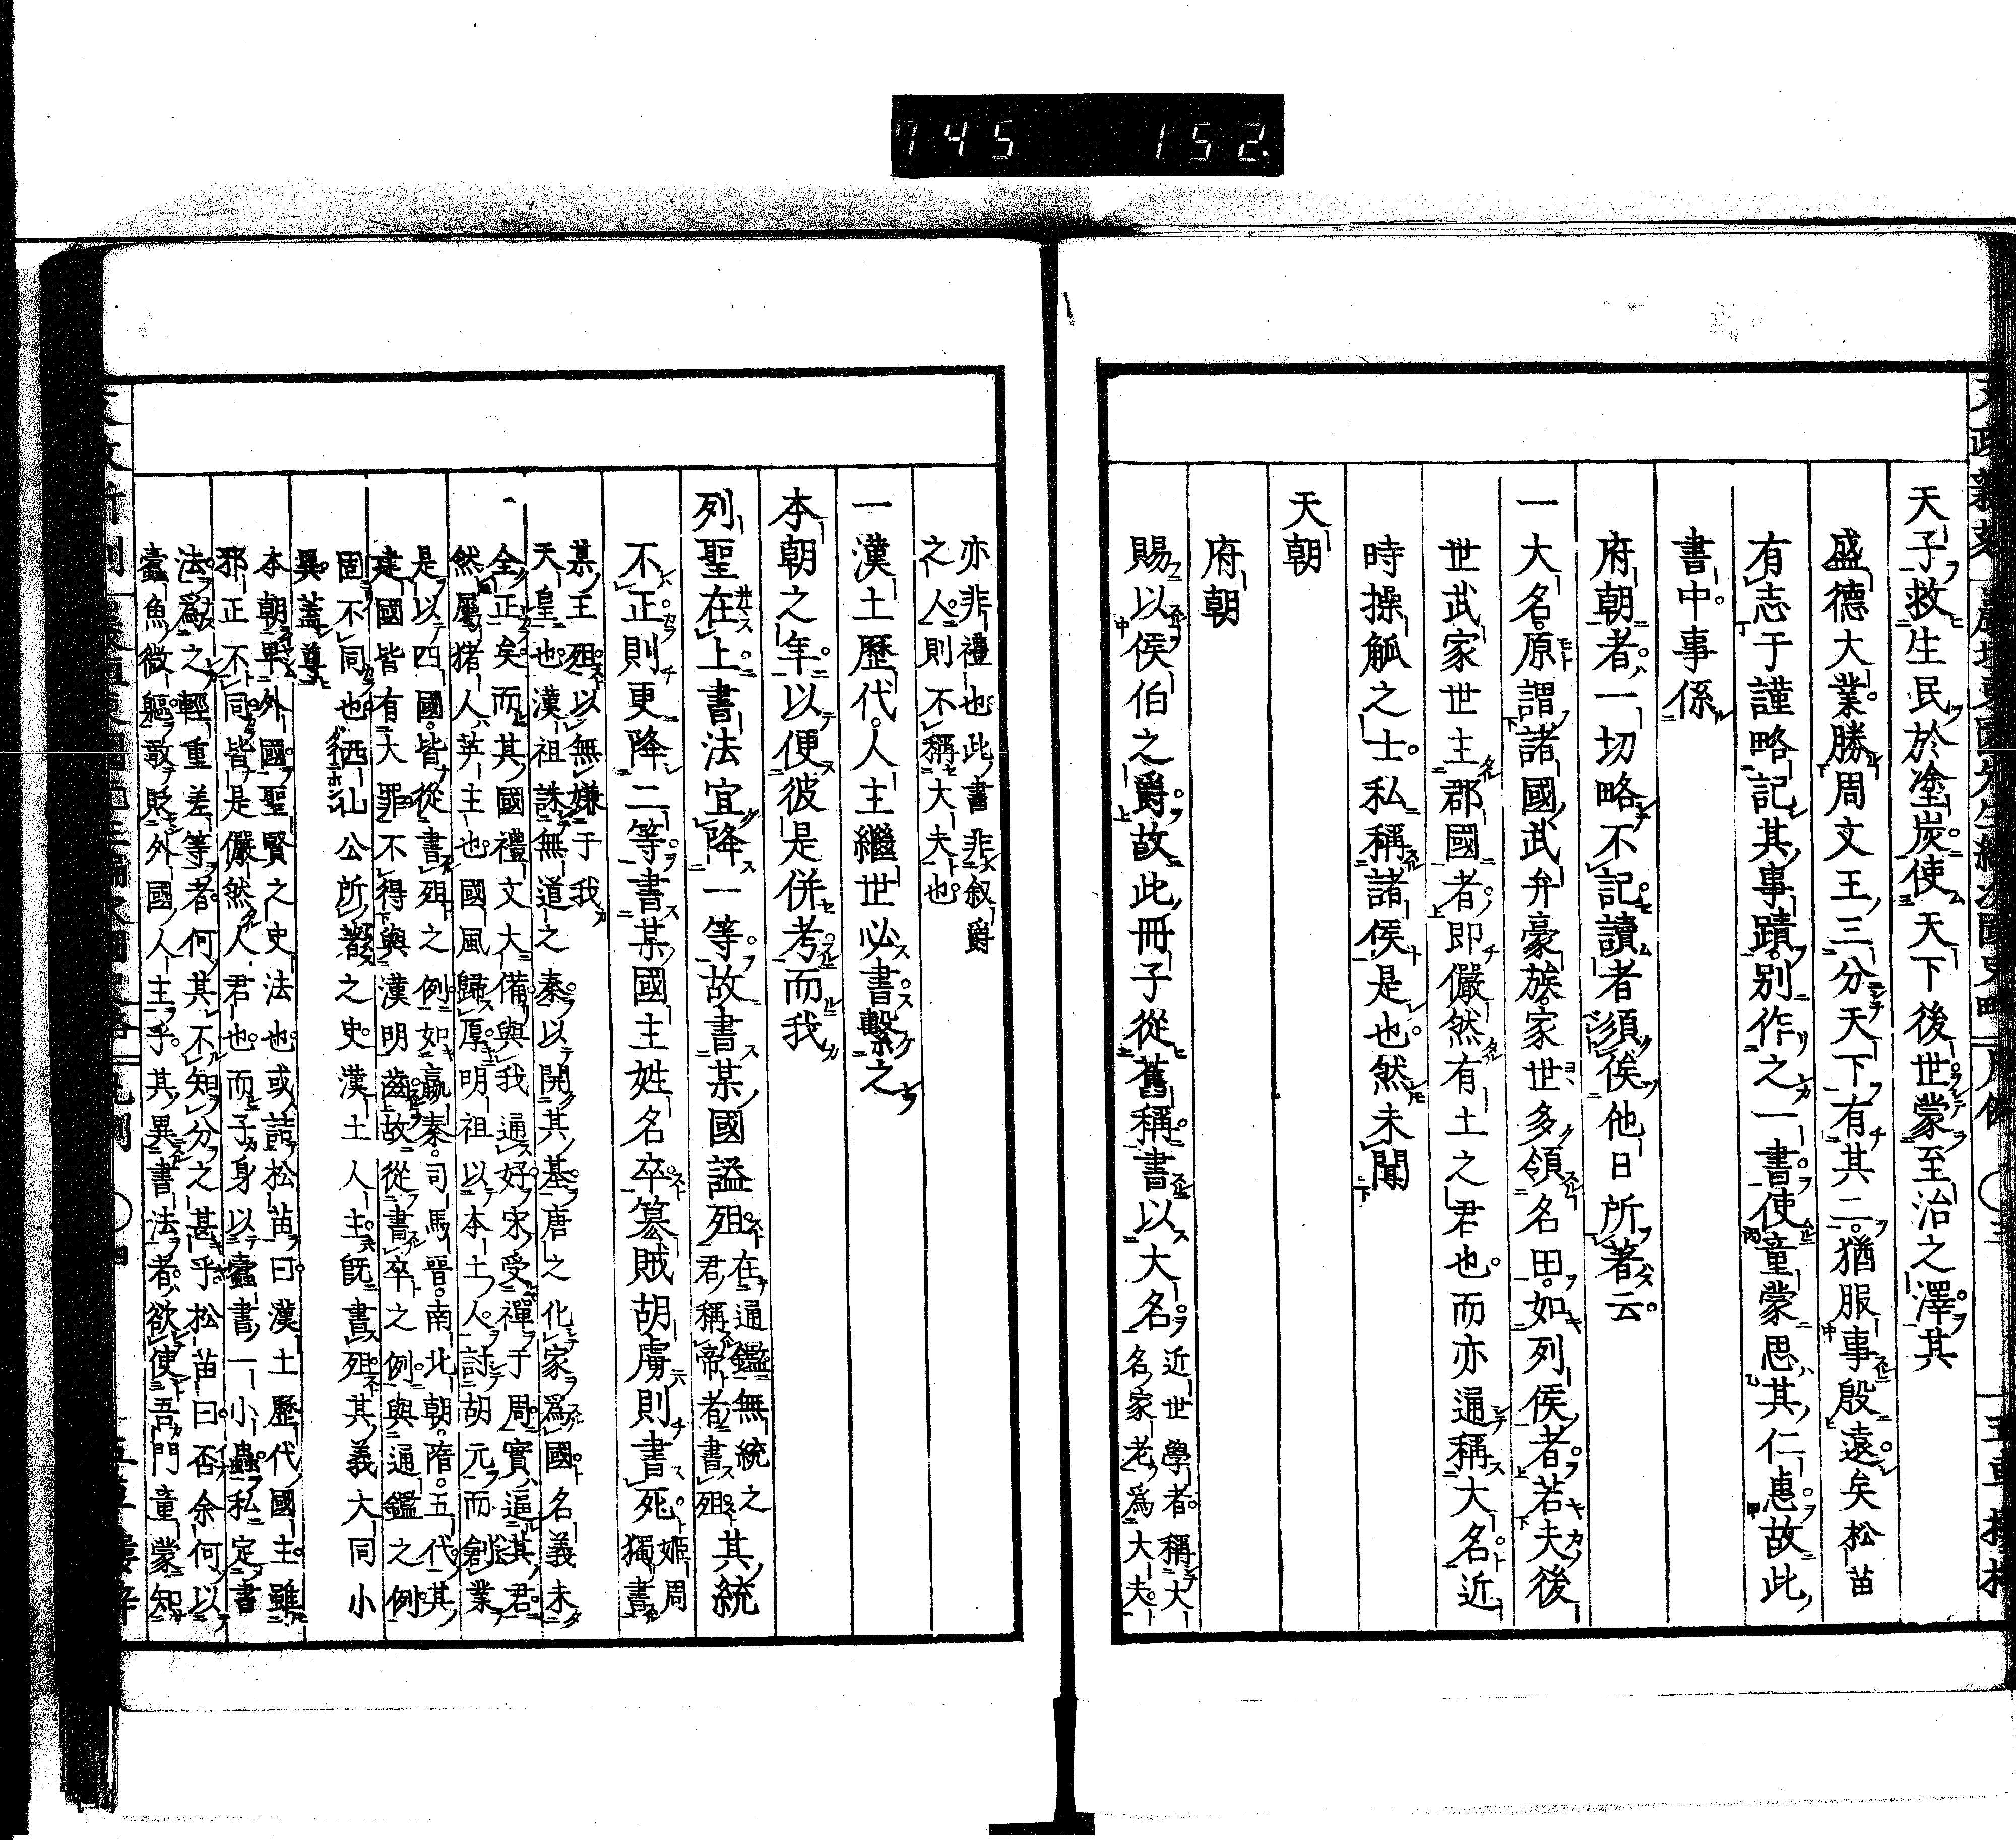 745 152.
天子救生民於塗炭使天下後世蒙至治之澤其
盛德大業勝周文王三分天下有其二猶服事殷遠矣松苗
有志于謹略記其事蹟別作之一書使童蒙思其仁惠故此
書中事係
府朝者一切略不記讀者須俟他日所著云
一大名原謂諸國武弁豪族家世多領名田如列侯者若夫後
世武家世主郡國者即儼然有土之君也而亦通稱大名近
時操觚之士私稱諸侯是也然未聞
天朝
府朝
賜以侯伯之爵故此冊子從舊稱書以大名
近世學者稱大
名家老為大夫
亦非禮也此書非叙爵
之人則不稱大夫也
一漢土歷代人主繼世必書繫之
本朝之年以便彼是併考而我
列聖在上書法宜降一等故書某國謚殂
在通鑑無統之
君稱帝者書殂
其統
不正則更降二等書某國主姓名卒篡賊胡虜則書死
姬周
獨書
某王殂以無嫌于我
天皇也漢祖誅無道之秦以開其基唐之化家為國名義未
全正矣而其國禮文大備與我通好宋受禪于周實逼其君
然屬猪人英主也國風歸厚明祖以本土人討胡元而創業
是以四國皆從書殂之例如嬴秦司馬晉南北朝隋五代其
建國皆有大罪不得與漢明齒故從書卒之例與通鑑之例
固不同也西山公所著之史漢土人主既書殂其義大同小
異蓋尊
本朝卑外國聖賢之史法也或詰松苗曰漢土歷代國主雖
邪正不同皆是儼然人君也而子身以蠹書一小蟲私定書
法為之輕重差等者何其不知分之甚乎松苗曰否余何以
蠹魚微軀敢貶外國人主乎其異書法者欲使吾門童蒙知